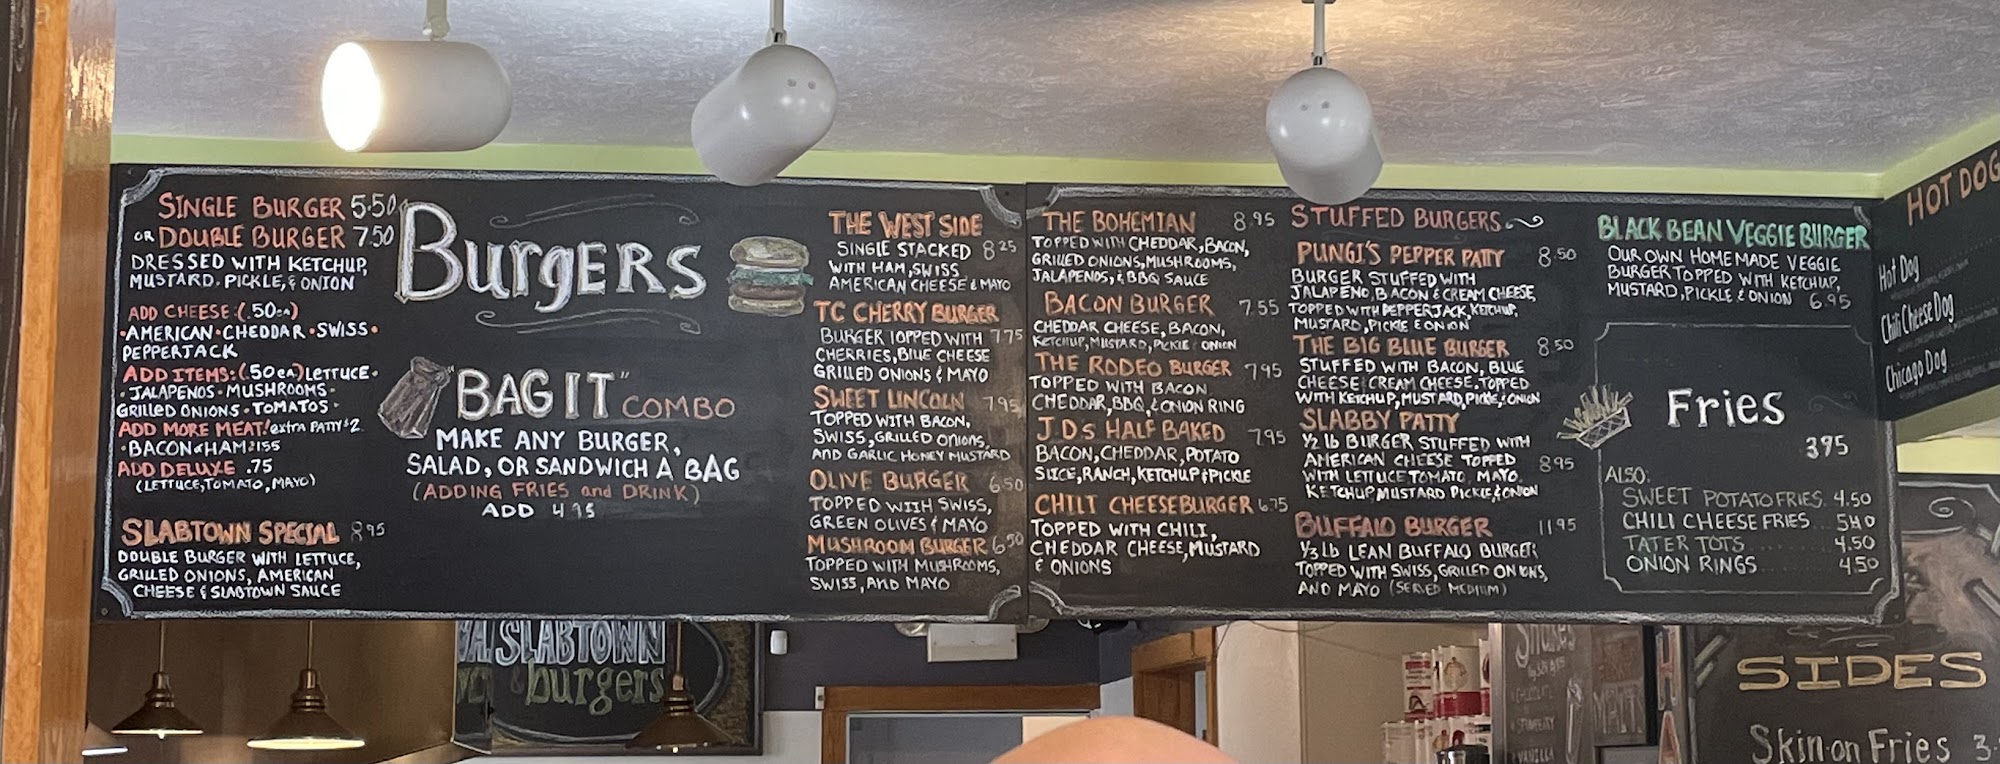 SINGLE BURGER 5.50
OR DOUBLE BURGER 7.50
DRESSED WITH KETCHUP,
MUSTARD, PICKLE, & ONION
ADD CHEESE: (.50ea)
•AMERICAN•CHEDDAR•SWISS•
PEPPERJACK
ADD ITEMS: (.50ea) LETTUCE•
•JALAPENOS•MUSHROOMS•
GRILLED ONIONS•TOMATOS•
ADD MORE MEAT! extra PATTY $2
•BACON & HAM: 1.55
ADD DELUXE .75
(LETTUCE, TOMATO, MAYO)
SLABTOWN SPECIAL 8.95
DOUBLE BURGER WITH LETTUCE,
GRILLED ONIONS, AMERICAN
CHEESE & SLABTOWN SAUCE
BurgERS
"BAG IT" COMBO
MAKE ANY BURGER,
SALAD, OR SANDWICH A BAG
(ADDING FRIES and DRINK)
ADD 4.95
THE WEST SIDE
SINGLE STACKED 8.25
WITH HAM, SWISS
AMERICAN CHEESE & MAYO
TC CHERRY BURGER
BURGER TOPPED WITH 7.75
CHERRIES, BLUE CHEESE
GRILLED ONIONS & MAYO
SWEET LINCOLN 7.95
TOPPED WITH BACON,
SWISS, GRILLED ONIONS,
AND GARLIC HONEY MUSTARD
OLIVE BURGER 6.50
TOPPED WITH SWISS,
GREEN OLIVES & MAYO
MUSHROOM BURGER 6.50
TOPPED WITH MUSHROOMS,
SWISS, AND MAYO
THE BOHEMIAN 8.95
TOPPED WITH CHEDDAR, BACON,
GRILLED ONIONS, MUSHROOMS,
JALAPENOS, & BBQ SAUCE
BACON BURGER 7.55
CHEDDAR CHEESE, BACON,
KETCHUP, MUSTARD, PICKLE & ONION
THE RODEO BURGER 7.95
TOPPED WITH BACON
CHEDDAR, BBQ, & ONION RING
J.D'S HALF BAKED 7.95
BACON, CHEDDAR, POTATO
SLICE, RANCH, KETCHUP & PICKLE
CHILI CHEESEBURGER 6.75
TOPPED WITH CHILI,
CHEDDAR CHEESE, MUSTARD
& ONIONS
STUFFED BURGERS
PUNGI'S PEPPER PATTY 8.50
BURGER STUFFED WITH
JALAPENO, BACON & CREAM CHEESE,
TOPPED WITH PEPPERJACK, KETCHUP,
MUSTARD, PICKLE & ONION
THE BIG BLUE BURGER 8.50
STUFFED WITH BACON, BLUE
CHEESE & CREAM CHEESE. TOPPED
WITH KETCHUP, MUSTARD, PICKLE, & ONION
SLABBY PATTY
1/2 lb BURGER STUFFED WITH
AMERICAN CHEESE TOPPED 8.95
WITH LETTUCE TOMATO, MAYO,
KETCHUP MUSTARD PICKLE & ONION
BUFFALO BURGER 11.95
1/3 Lb LEAN BUFFALO BURGER
TOPPED WITH SWISS, GRILLED ONIONS,
AND MAYO (SERVED MEDIUM)
BLACK BEAN VEGGIE BURGER
OUR OWN HOMEMADE VEGGIE
BURGER TOPPED WITH KETCHUP,
MUSTARD, PICKLE & ONION 6.95
Fries
3.95
ALSO:
SWEET POTATO FRIES. 4.50
CHILI CHEESE FRIES... 5.40
TATER TOTS........... 4.50
ONION RINGS.......... 4.50
HOT DOG
Hot Dog
Chili Cheese Dog
Chicago Dog
SLABTOWN
burgers
Shakes
CHOCOLATE
VANILLA
SIDES
Skin-on Fries 3.